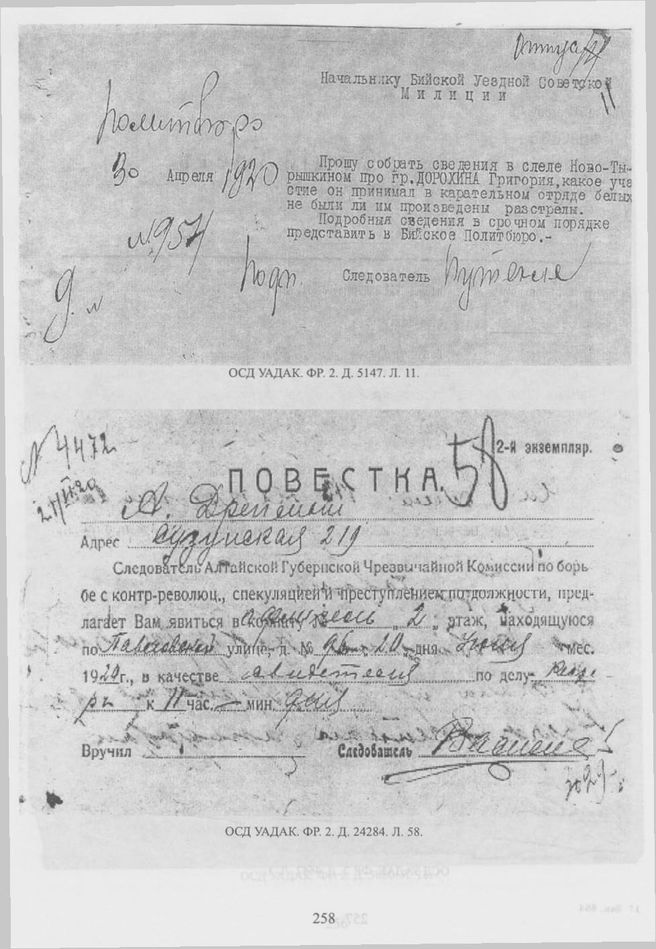 Начальнику Бийской Уездной Советской
Милиции
Политбюро
30 Апреля 1920
№ 954
Прошу собрать сведения в слеле Ново-Ты-
рышкином про гр.ДОРОХИНА Григория,какое уча
стие он принимал в карательном отряде белых
не были ли им произведены расстрелы.
Подробныя сведения в срочном порядке
представить в Бийское Политбюро.-
Следователь
ОСД УАДАК. ФР. 2. Д. 5147. Л. 11.
N 4472
58
2-й экземпляр.
ПОВЕСТКА.
А.
Адрес Сузунская 219
Следователь Алтайской Губернской Чрезвычайной Комиссии по борь
бе с контр-революц., спекуляцией и преступлением по должности, пред-
лагает Вам явиться в комнату „ 2 „ этаж, находящуюся
по Павловской улице, д. № 96 „ 20 „ дня Июня мес.
1920 г., в качестве свидетеля по делу
к 11 час. — мин. дня
Вручил Следователь
ОСД УАДАК. ФР. 2. Д. 24284. Л. 58.
258